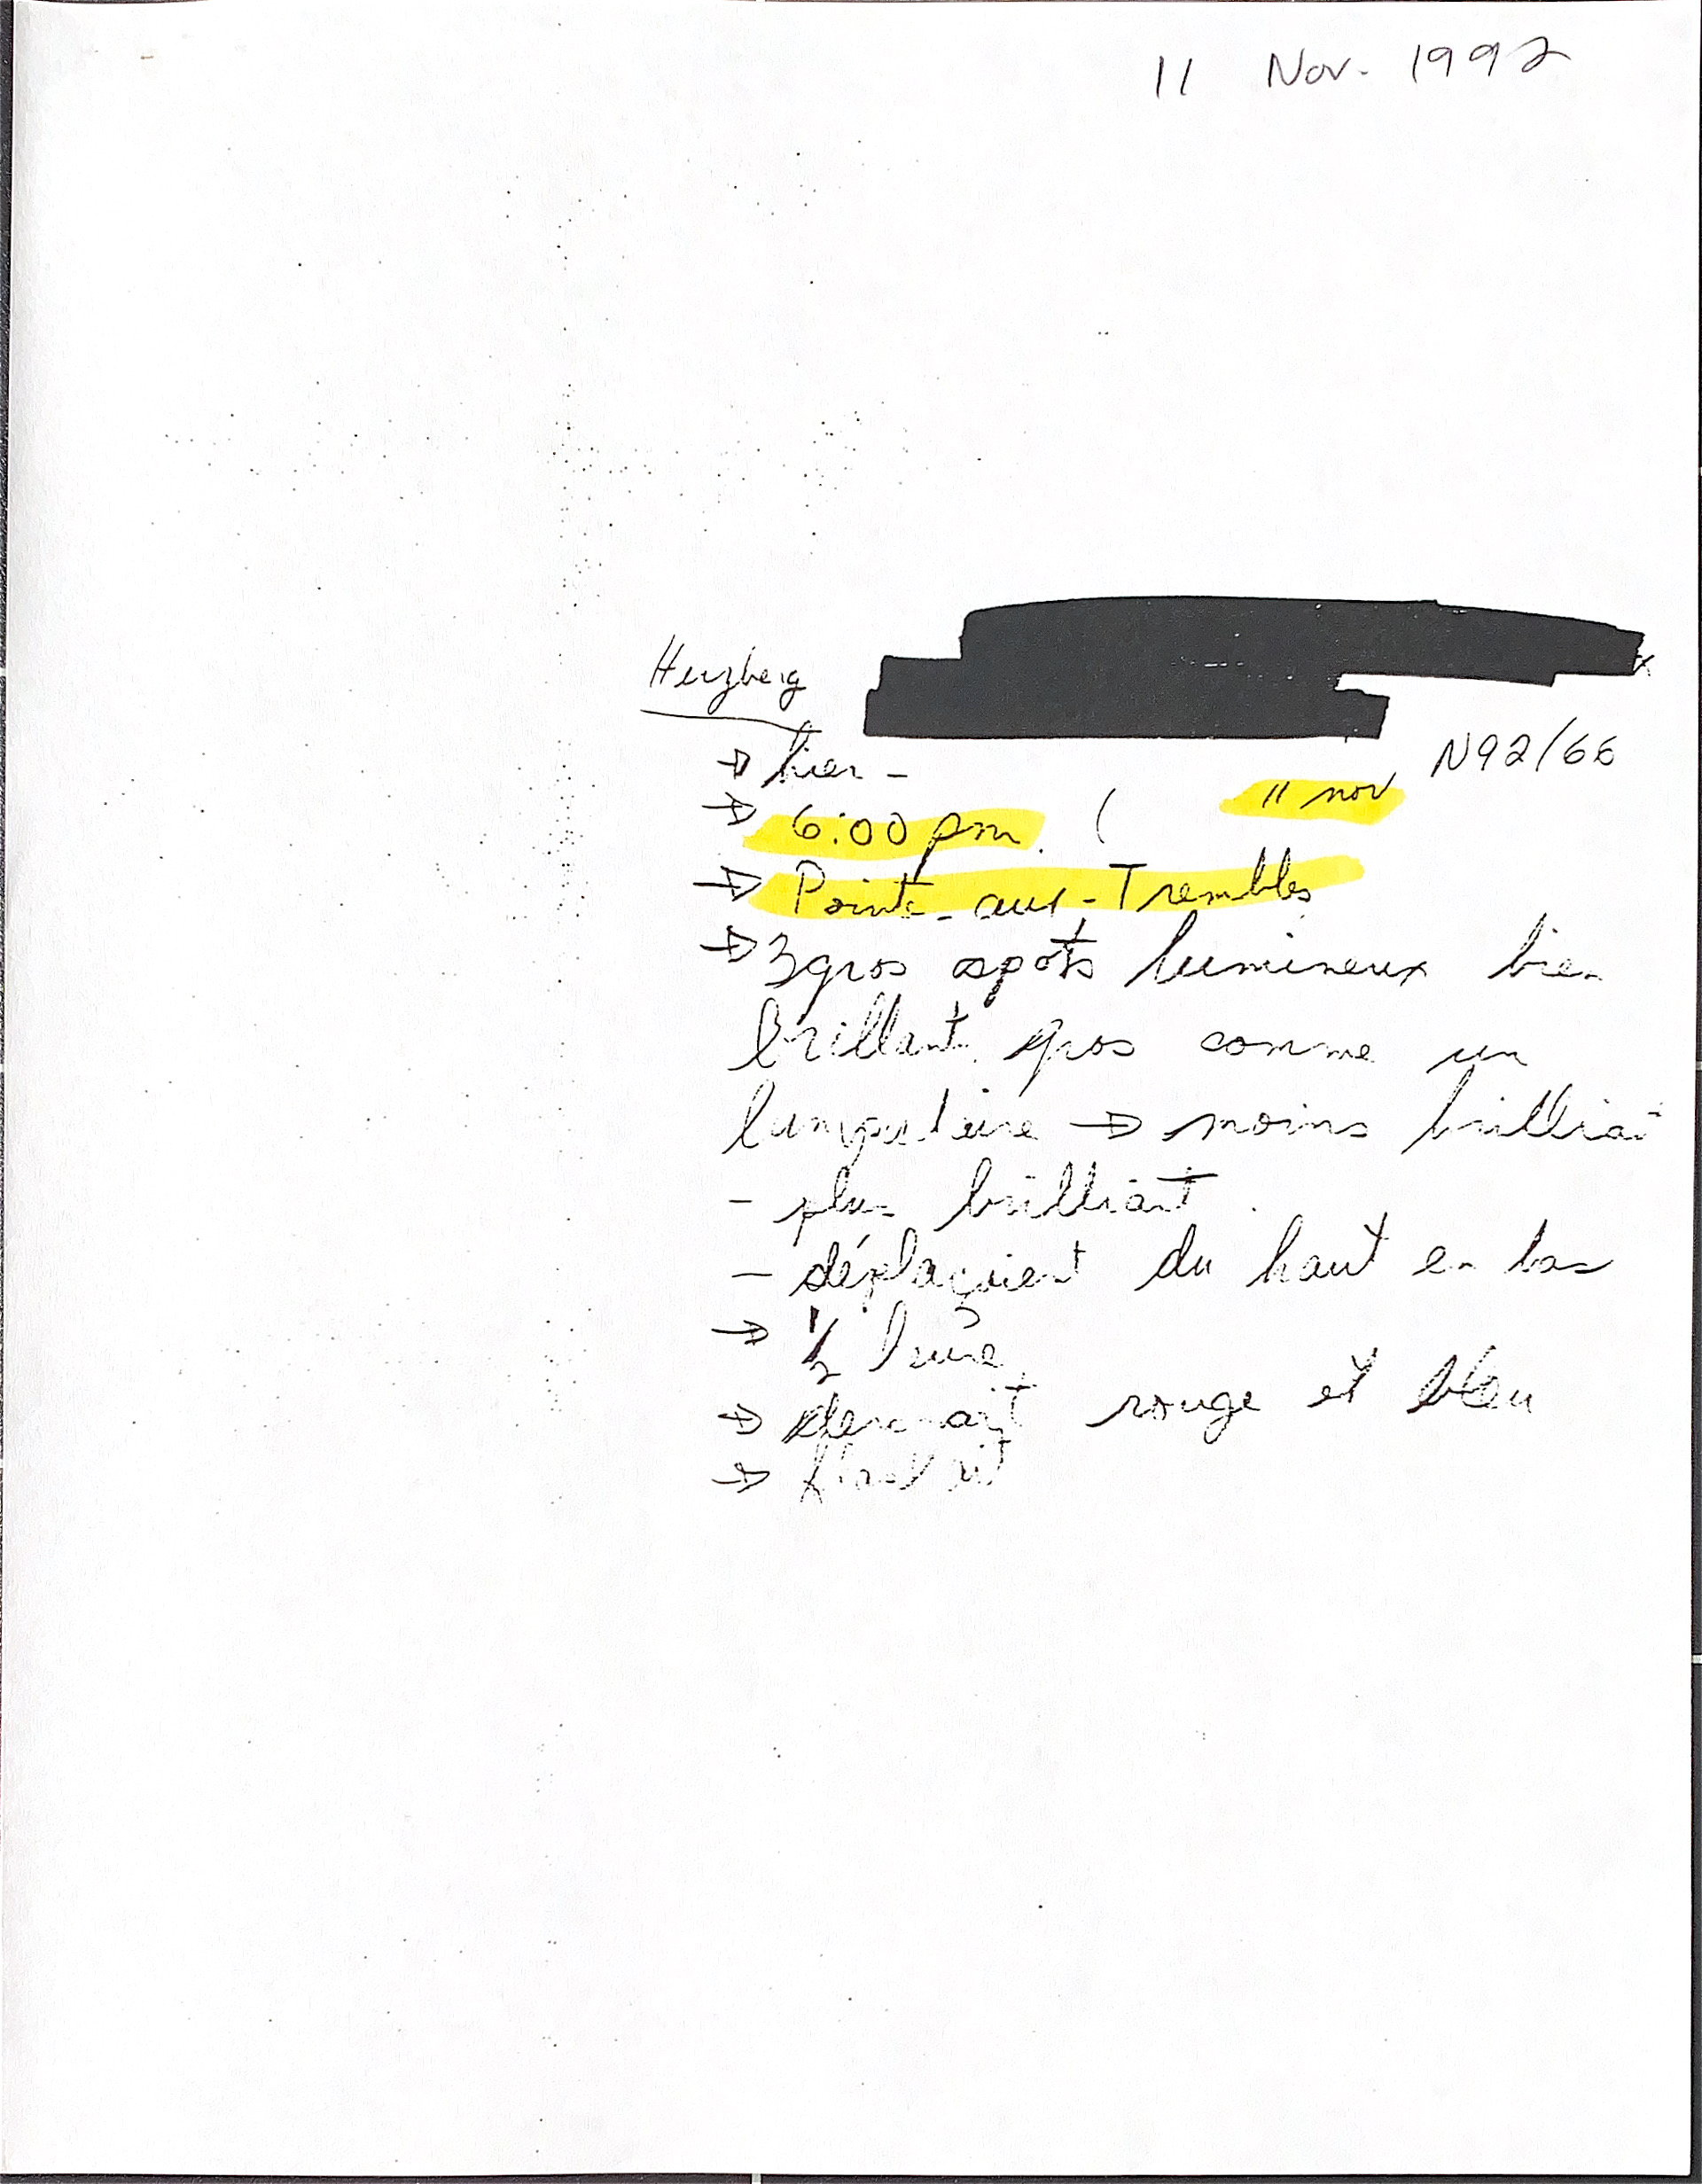 11 Nov. 1992
Herzberg
N92/66
→ hier -
→ 6:00 pm. ( 11 nov
→ Pointe-aux-Trembles
→ 3 gros spots lumineux bien
brillant gros comme un
lampadaire → moins brilliant
- plus brilliant.
- déplaçaient du haut en bas
→ ½ heure
→ devenait rouge et bleu
→